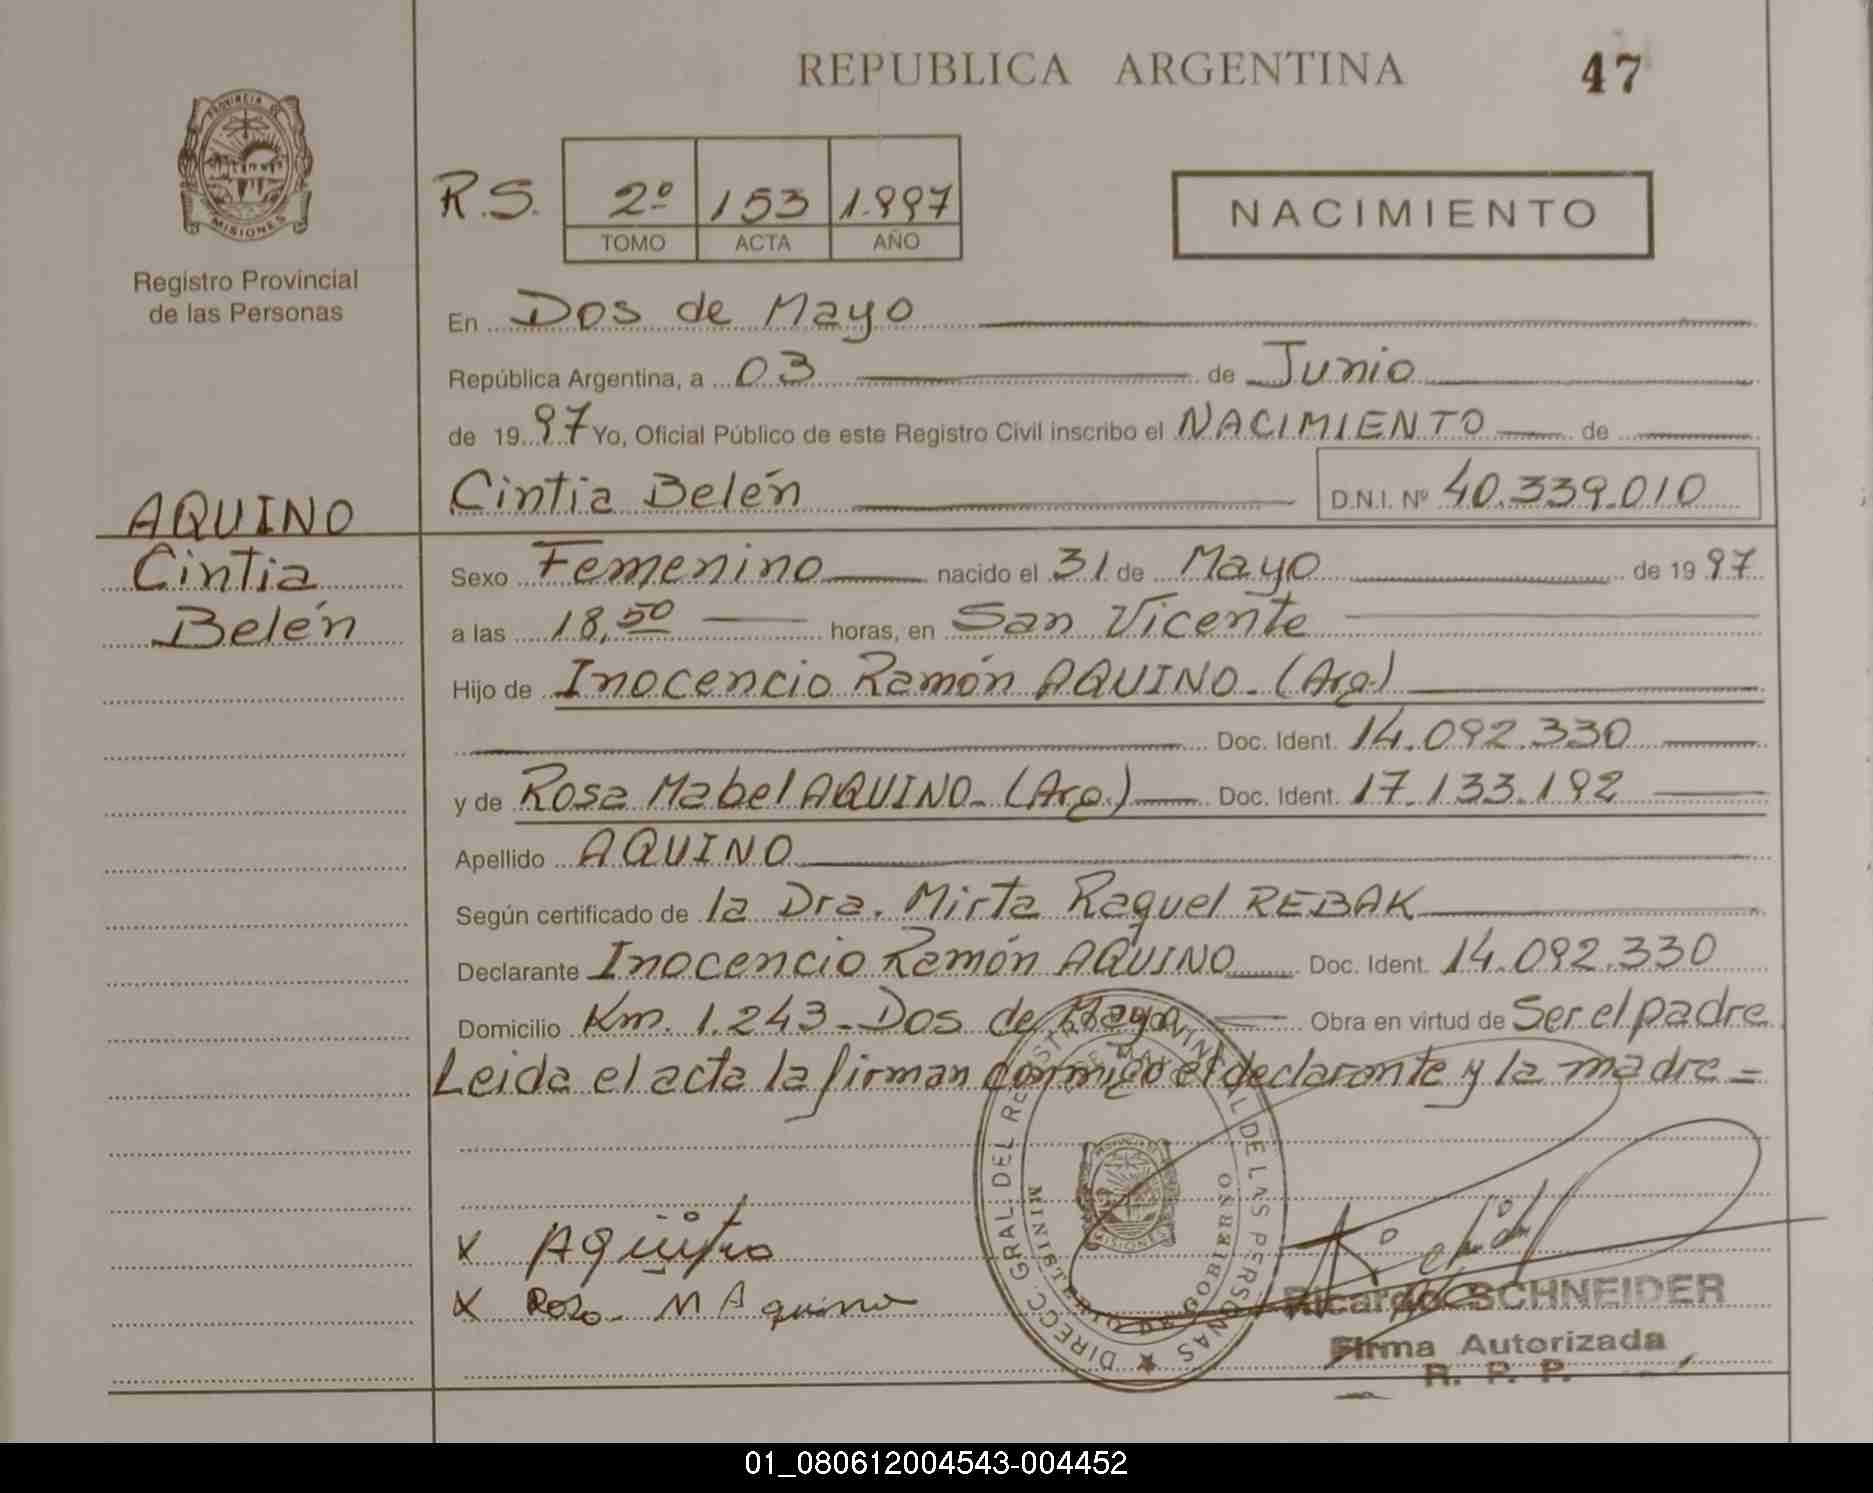 REPUBLICA ARGENTINA
47
PROVINCIA DE
MISIONES
Registro Provincial
de las Personas
R.S.
2º 153 1.997
TOMO ACTA AÑO
NACIMIENTO
En Dos de Mayo
República Argentina, a 03 de Junio
de 1997 Yo, Oficial Público de este Registro Civil inscribo el NACIMIENTO de
Cintia Belén D.N.I. Nº 40.339.010
AQUINO
Cintia
Belén
Sexo Femenino nacido el 31 de Mayo de 1997
a las 18,50 horas, en San Vicente
Hijo de Inocencio Ramón AQUINO.(Arg.)
Doc. Ident. 14.092.330
y de Rosa Mabel AQUINO.(Arg.) Doc. Ident. 17.133.192
Apellido AQUINO
Según certificado de la Dra. Mirta Raquel REBAK
Declarante Inocencio Ramón AQUINO Doc. Ident. 14.092.330
Domicilio Km. 1.243-Dos de Mayo Obra en virtud de Ser el padre
Leida el acta la firman conmigo el declarante y la madre=
DIRECC. GRAL. DEL REGISTRO PROVINCIAL DE LAS PERSONAS
MINISTERIO DE GOBIERNO
MISIONES
x Aquino
x Rosa M Aquino
Ricardo SCHNEIDER
Firma Autorizada
R. P. P.
01_080612004543-004452